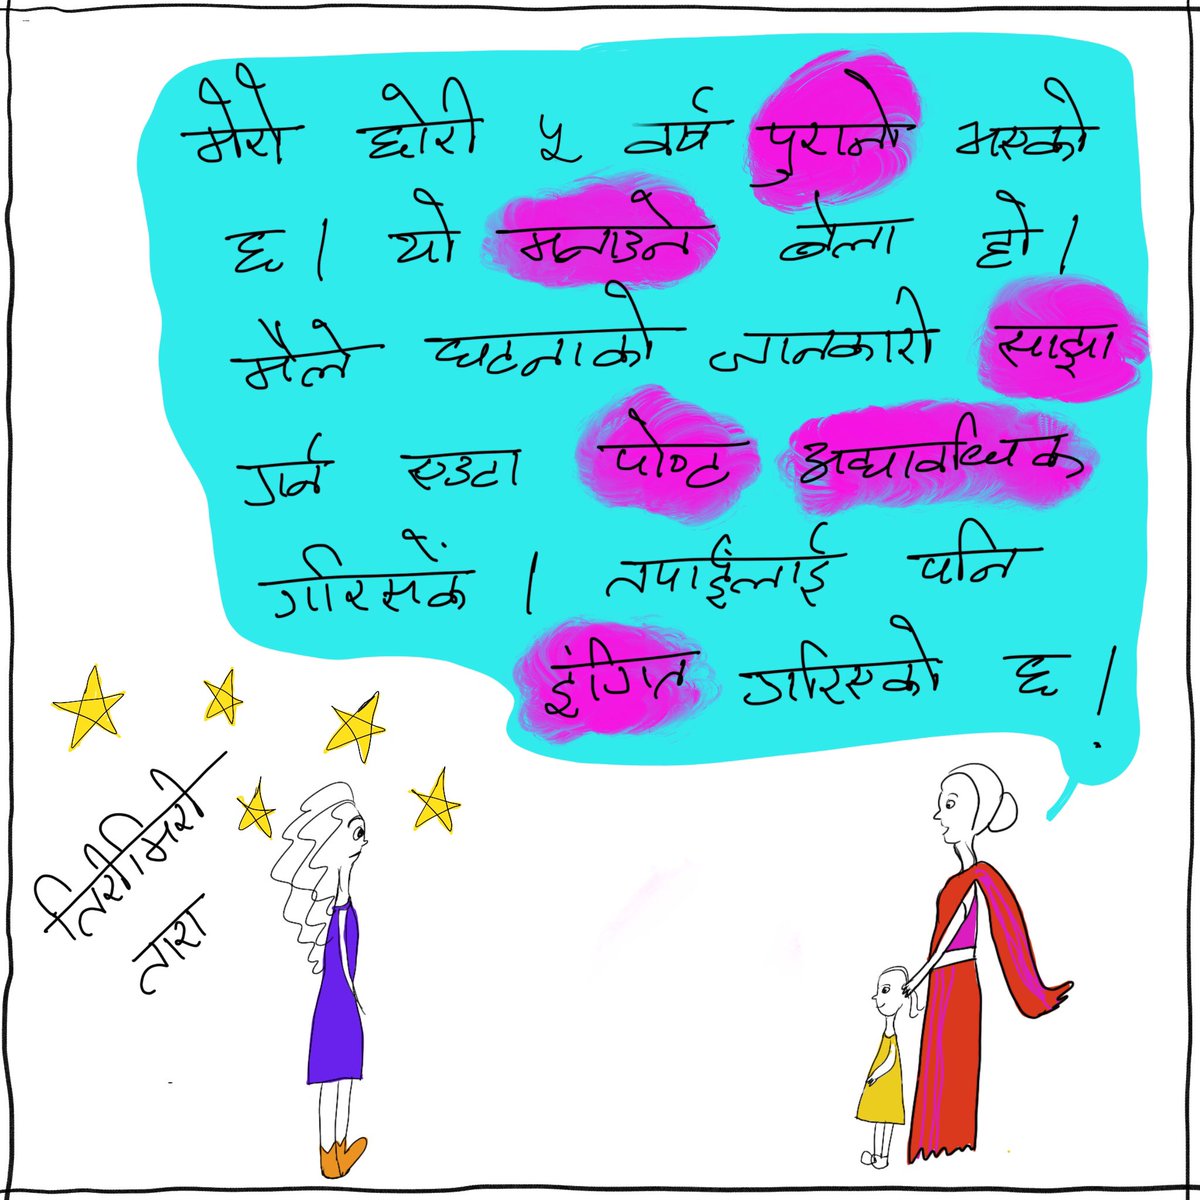 मेरो छोरी ५ वर्ष पुरानो भएको
छ। यो मनाउने बेला हो।
मैले घटनाको जानकारी साझा
गर्न एउटा पोष्ट अद्यावधिक
गरिसकें। तपाईंलाई पनि
इंगित गरिएको छ।
तिरीमिरी
तारा